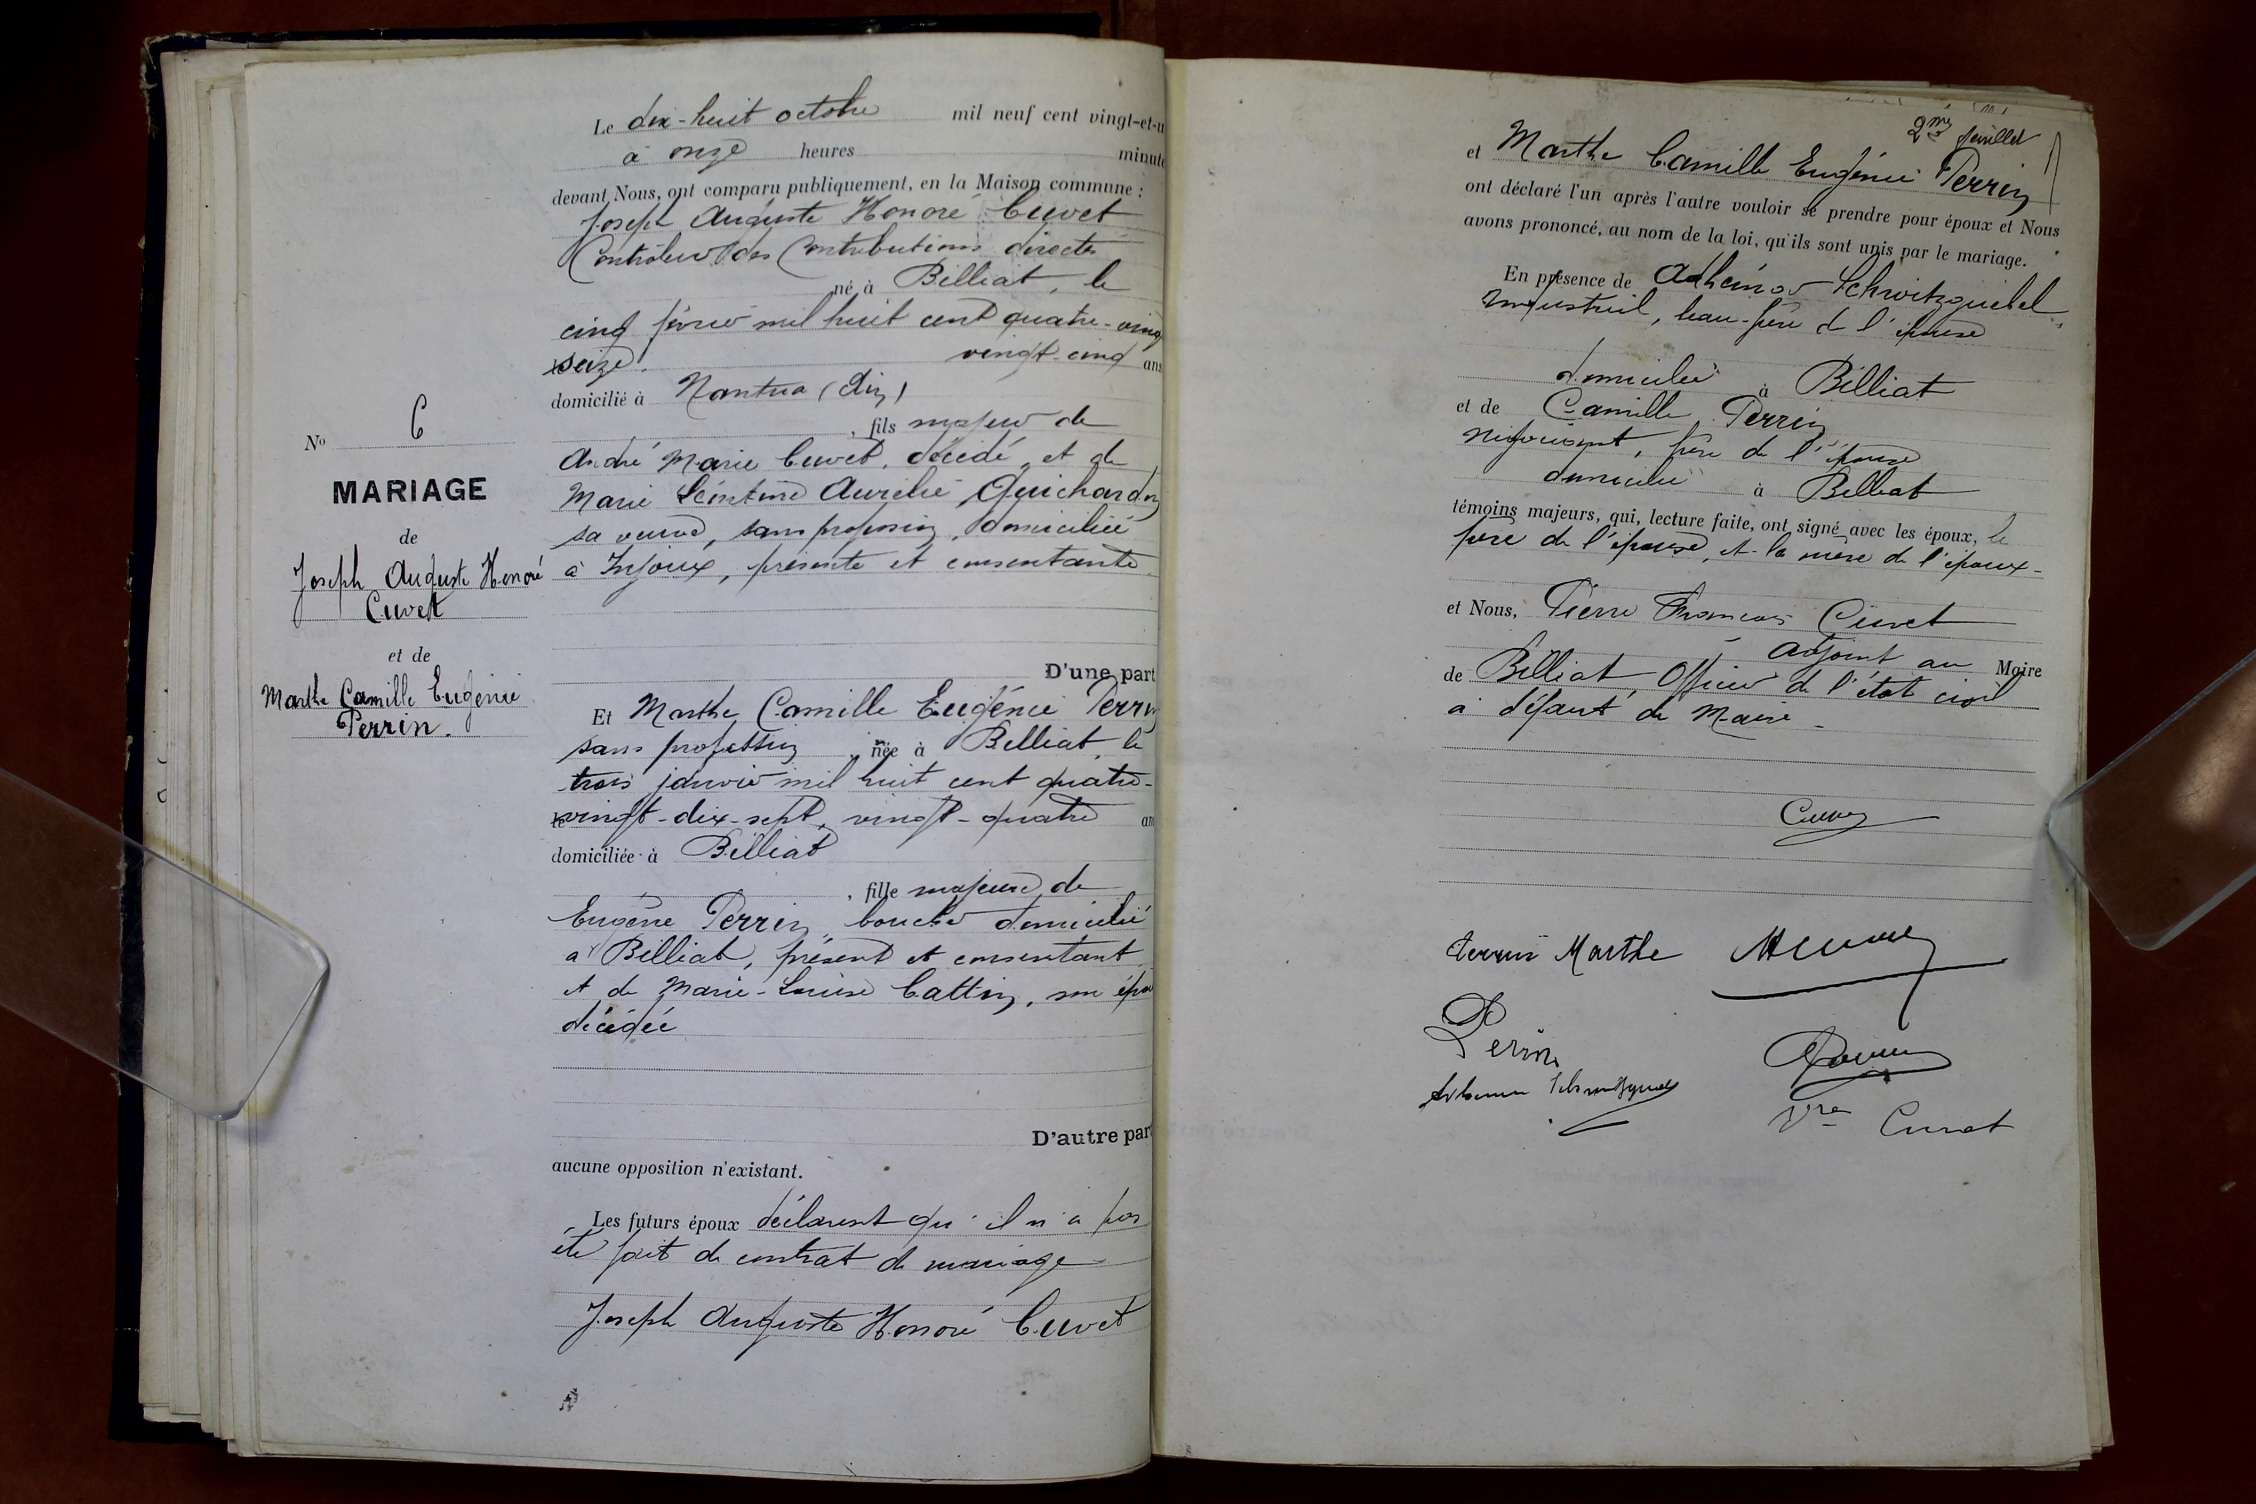 Le dix-huit octobre mil neuf cent vingt-et-u
à onze heures minute
devant Nous, ont comparu publiquement, en la Maison commune :
Joseph Auguste Honoré Cuvet
Contrôleur des Contributions directes
né à Billiat, le
cinq février mil huit cent quatre-ving
seize. vingt-cinq ans
domicilié à Nantua (Ain)
, fils majeur de
André Marie Cuvet, décédé, et de
Marie Léontine Aurélie Guichardon
sa veuve, sans profession, domiciliée
à Injoux, présente et consentante
D'une part
Et Marthe Camille Eugénie Perrin
sans profession née à Billiat, le
trois janvier mil huit cent quatre-
vingt-dix-sept, vingt-quatre an
domiciliée à Billiat
, fille majeure de
Eugène Perrin, boucher domicilié
à Billiat, présent et consentant
et de Marie-Louise Cattin, son épou
décédée
D'autre part
aucune opposition n'existant.
Les futurs époux déclarent qu'il n'a pas
été fait de contrat de mariage
Joseph Auguste Honoré Cuvet
No 6
MARIAGE
de
Joseph Auguste Honoré
Cuvet
et de
Marthe Camille Eugénie
Perrin.
2me feuillet
et Marthe Camille Eugénie Perrin
ont déclaré l'un après l'autre vouloir se prendre pour époux et Nous
avons prononcé, au nom de la loi, qu'ils sont unis par le mariage.
En présence de Adhémar Schwitzguébel
industriel, beau-frère de l'épouse
domicilié à Billiat
et de Camille Perrin
négociant, frère de l'épouse
domicilié à Billiat
témoins majeurs, qui, lecture faite, ont signé avec les époux, le
père de l'épouse, et la mère de l'époux-
et Nous, Pierre François Cuvet
adjoint au Maire
de Billiat Officier de l'état civil
à défaut de Maire -
Cuvet
Perrin Marthe
Perrin
Vve Cuvet